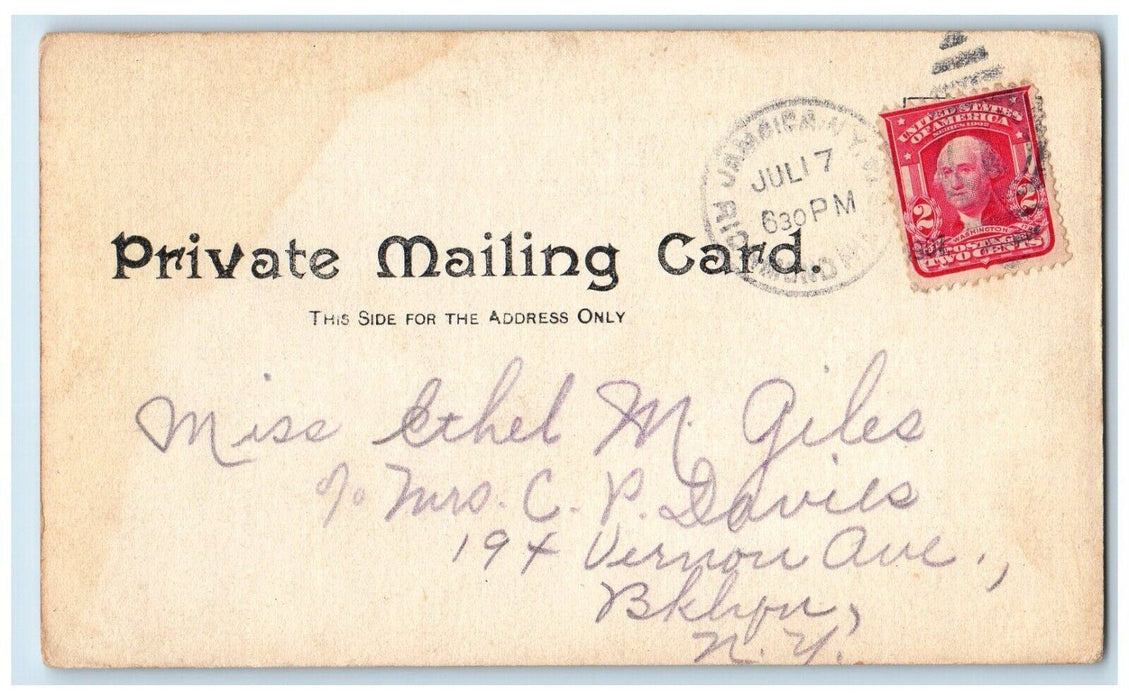 JAMAICA, N.Y.
RICHMOND HILL
JUL 17
630 PM
UNITED STATES
OF AMERICA
SERIES 1902
2 2
WASHINGTON
POSTAGE
TWO CENTS
Private Mailing Card.
THIS SIDE FOR THE ADDRESS ONLY
Miss Ethel M. Giles
c/o Mrs. C. P. Davies
194 Vernon Ave.,
Bklyn,
N. Y.